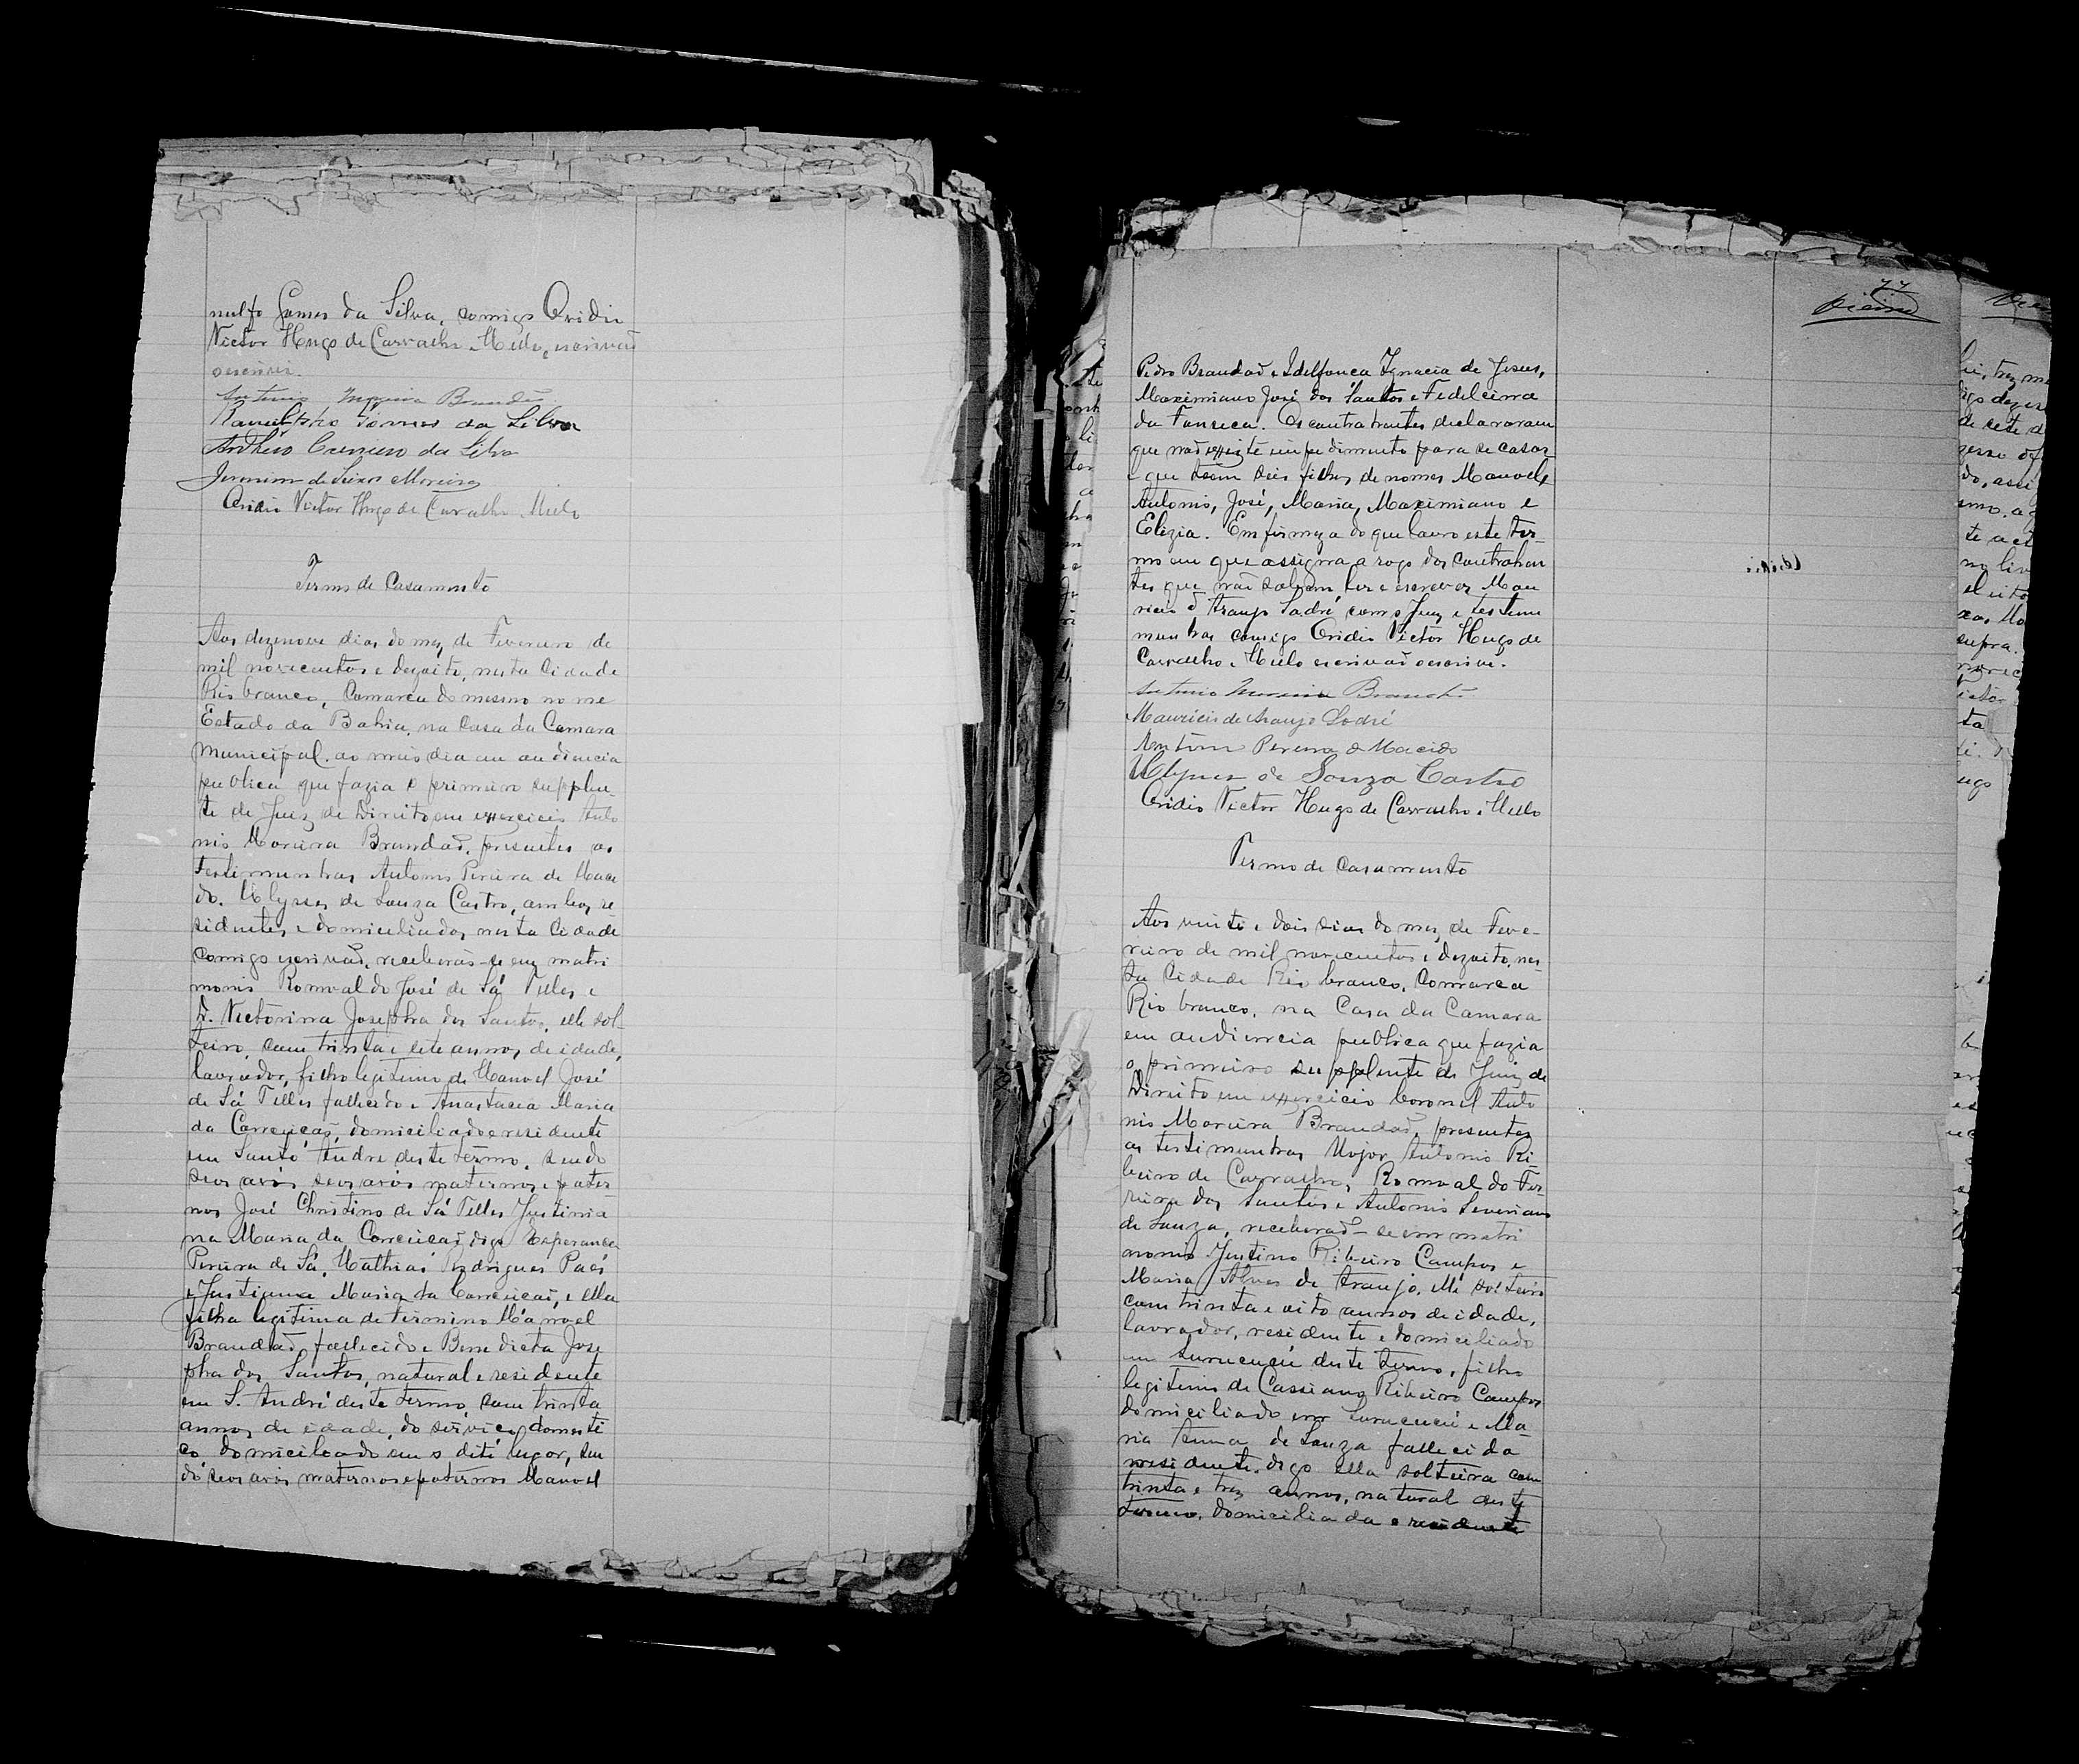 nulfo Gomes da Silva, comigo Ovidio
Victor Hugo de Carvalho e Mello, escrivaõ
o escrivi.
Antonio Moreira Brandão
Ranulpho Gomes da Silva
Carneiro da Silva
Jeronimo de Moreira
Ovidio Victor Hugo de Carvalho Mello
Termo de Casamento
Aos dezenove dias do mez de Fevereiro de
mil novecentos e dezoito, nesta Cidade
Rio branco, Comarca do mesmo nome
Estado da Bahia, na Casa da Camara
Municipal, ao meio dia em audiencia
publica que fazia o primeiro supplen-
te de Juiz de Direito em exercicio Anto
nio Moreira Brandaõ, presentes as
testimunhas Antonio Pereira de Mace
do, Ulysses de Souza Castro, ambos re
sidentes e domiciliados nesta Cidade
comigo escrivaõ, receberaõ-se em matri
monio Romvaldo José de Sá Telles e
D. Victorina Josepha dos Santos, elle sol-
teiro, com trinta e sete annos de idade,
lavrador, filho legitimo de Manoel José
de Sá Telles fallecido e Anastacia Maria
da Conceicaõ, domiciliado e residente
em Santo André deste termo, sendo
seos avós seos avós maternos e pater
nos José Christino de Sá Telles Justinia
na Maria da Conceicaõ digo Esperanca
Pereira de Sá, Mathias Rodrigues Paes
e Justiana Maria da Conceicaõ, e ella
filha legitima de Firmino Manoel
Brandaõ fallecido e Benedicta Jose
pha dos Santos, natural e residente
em S. André deste termo, com trinta
annos de idade, do serviço domesti
co, domiciloado em o dito lugor, sen
do seos avós maternos e paternos Manoel
77
Vieira
Pedro Brandaõ e Idelfonca Ignacia de Jesus,
Maximiano José dos Santos e Fidelcina
da Fonseca. Os contratrantes declararam
que naõ exziste impedimento para se casar
e que teem seis filhos de nomes Manoel,
Antonio, José, Maria, Maximiano e
Elizia. Em firmeza do que lavro este ter-
mo em que assigna a rogo dos contrahen
tes que naõ sabem ler e escrever Mau
ricio d' Araujo Sodré com o Juiz e testemu
munhas comigo Ovidio Victor Hugo de
Carvalho e Mello escrivaõ o escrivi.
Antonio Moreira Brandão
Mauricio de Araujo Sodré
Antonio Pereira de Macedo
Ulysses de Souza Castro
Ovidio Victor Hugo de Carvalho e Mello
Termo de Casamento
Aos vinte e dois dias do mez de Feve-
reiro de mil novecentos e dezoito, nes-
ta Cidade Rio branco, Comarca
Rio branco, na Casa da Camara
em audiencia publica que fazia
o primeiro supplente de Juiz de
Direito em exzercicio Coronel Anto
nio Moreira Brandaõ, presentes
as testimunhas Major Antonio Ri-
beiro de Carvalho, Romvaldo Fer-
reira dos Santos e Antonio Severiano
de Souza, receberaõ-se em matri
monio Justino Ribeiro Campos e
Maria Alves de Araujo, elle solteiro
com trinta e oito annos de idade,
lavrador, residente e domiciliado
em Surucucú deste termo, filho
legitimo de Cassiano Ribeiro Campos
domiciliado em Surucucú e Ma-
ria Anna de Souza fallecida
residente, digo ella solteira com
trinta e trez annos, natural deste
termo, domiciliada e residente